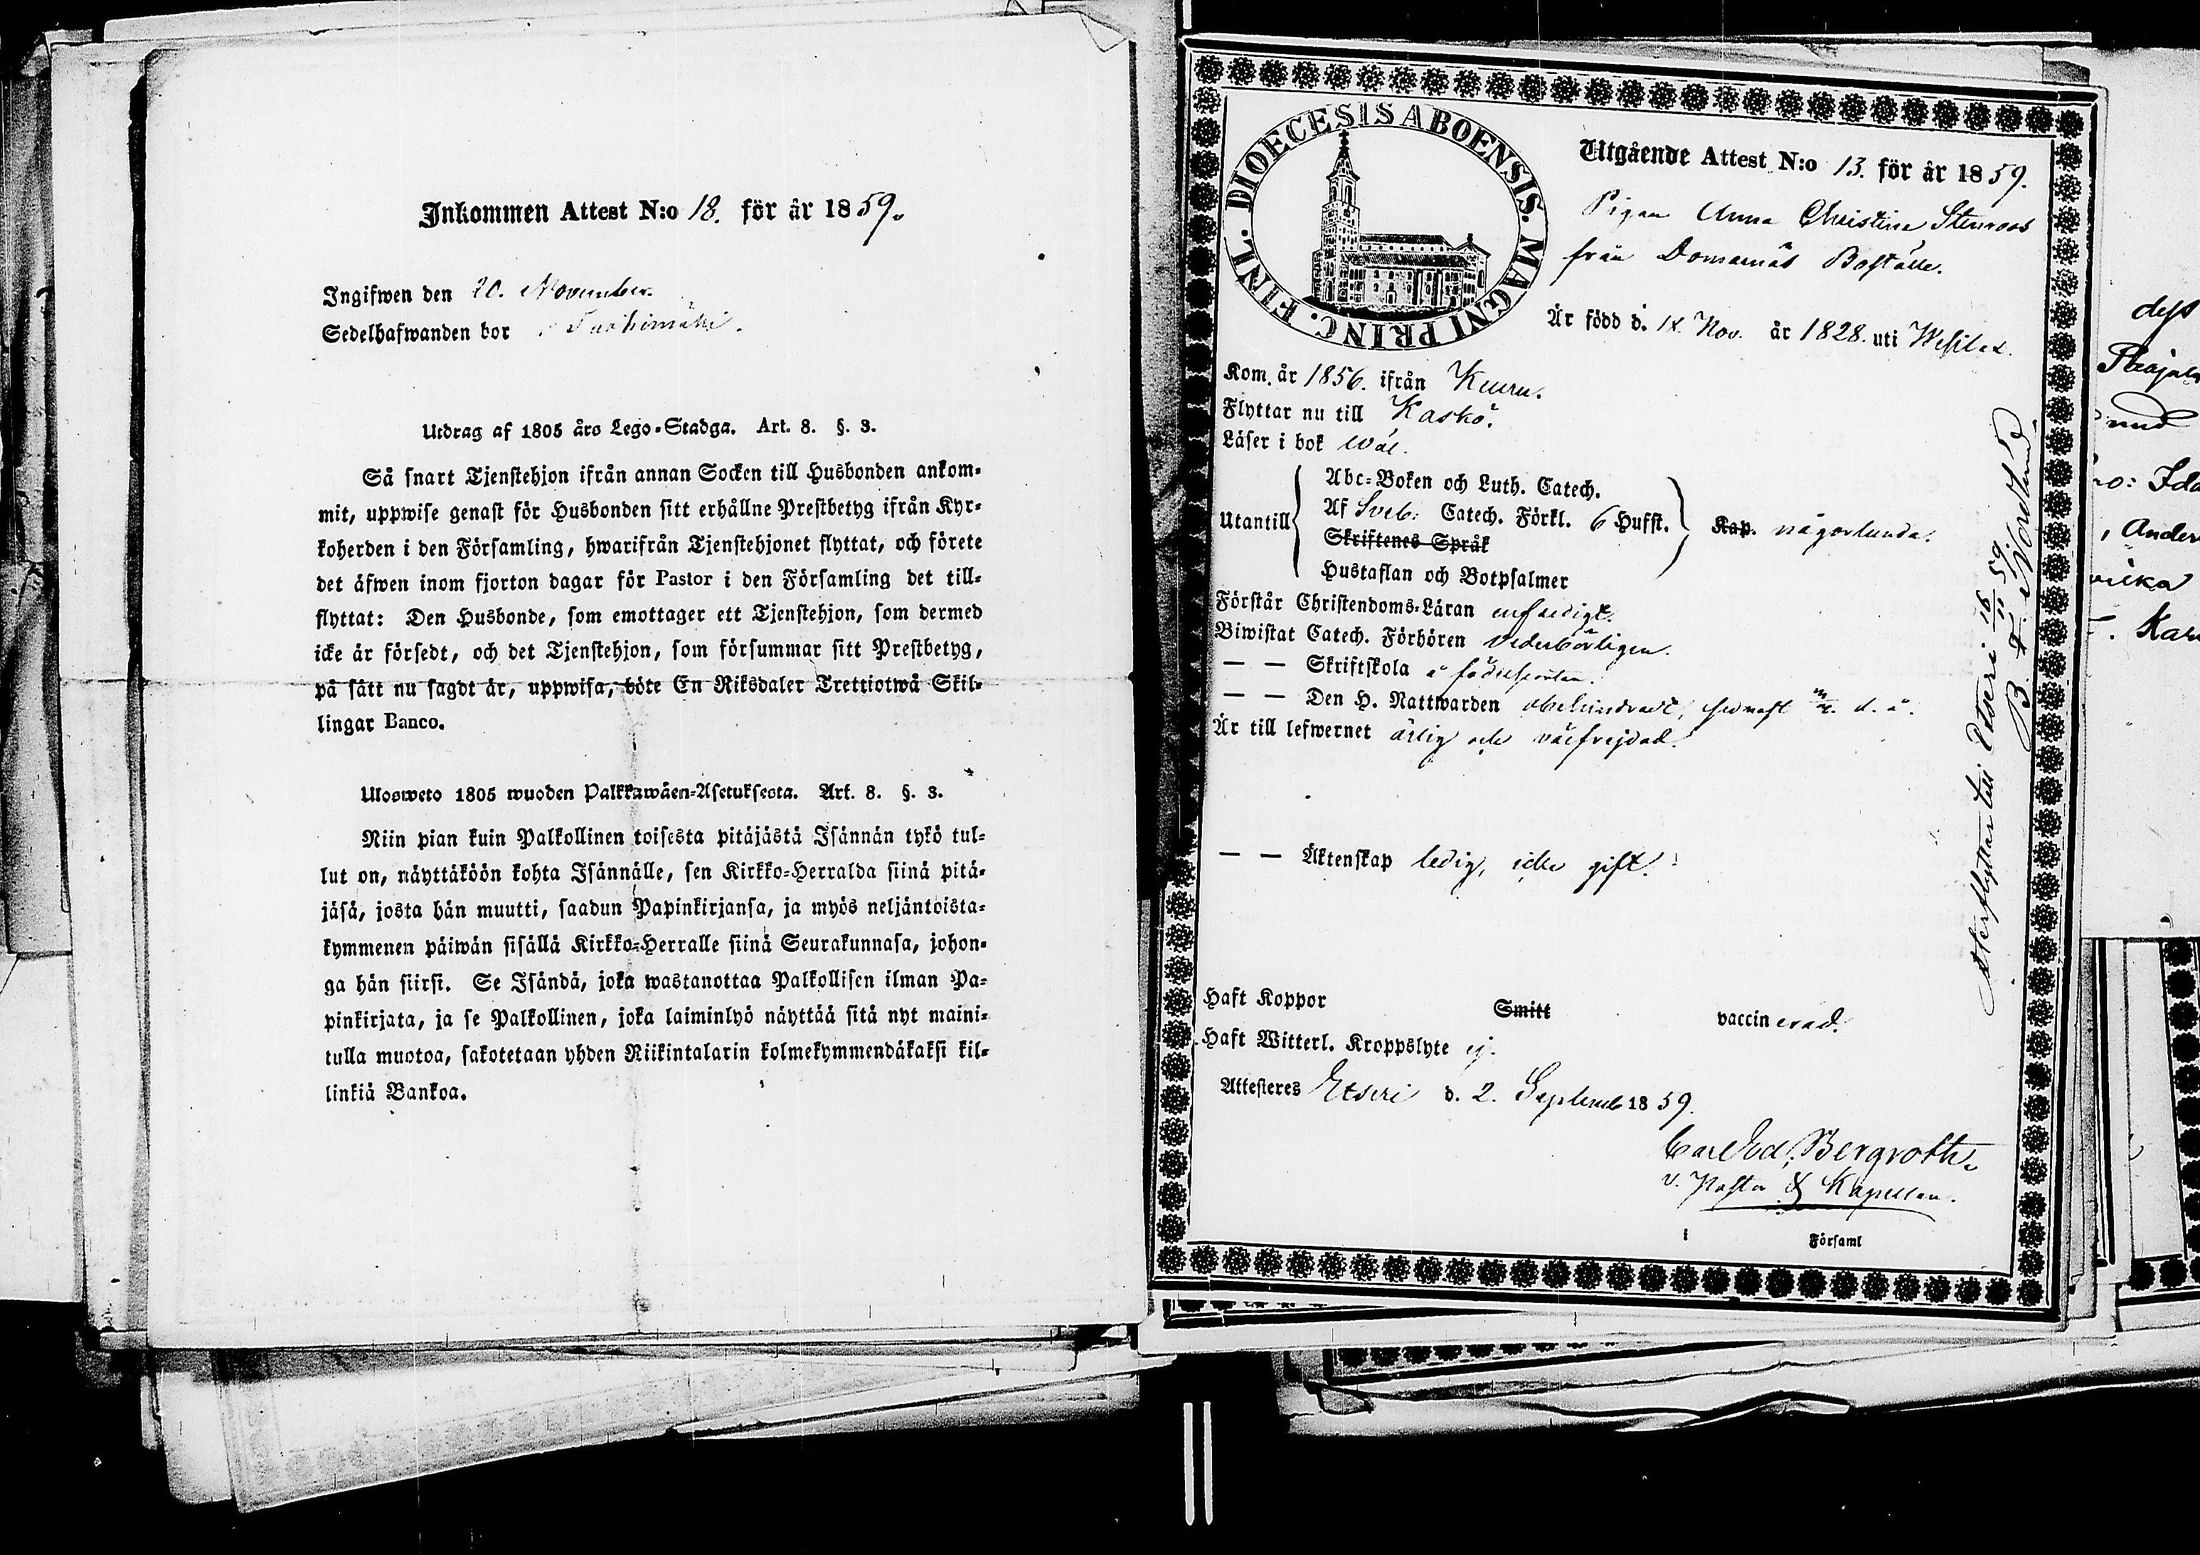 Inkommen Attest N:o 18. för år 1859.
Ingifwen den 20. November.
Sedelhafwanden bor
Utdrag af 1805 års Lego-Stadga. Art. 8. §. 3.
Så snart Tjenstehjon ifrån annan Socken till Husbonden ankom-
mit, uppwise genast för Husbonden sitt erhållne Prestbetyg ifrån Kyr-
koherden i den Församling, hwarifrån Tjenstehjonet flyttat, och förete
det äfwen inom fjorton dagar för Pastor i den Församling det till-
flyttat: Den Husbonde, som emottager ett Tjenstehjon, som dermed
icke är försedt, och det Tjenstehjon, som försummar sitt Prestbetyg,
på sätt nu sagdt är, uppwisa, böte En Riksdaler Trettiotwå Skil-
lingar Banco.
Ulosweto 1805 wuoden Palkkawäen-Asetuksesta. Art. 8. §. 3.
Niin pian kuin Palkollinen toisesta pitäjästä Isännän tykö tul-
lut on, näyttäköön kohta Isännälle, sen Kirkko-Herralda siinä pitä-
jäsä, josta hän muutti, saadun Papinkirjansa, ja myös neljäntoista-
kymmenen päiwän sisällä Kirkko-Herralle siinä Seurakunnasa, johon-
ga hän siirsi. Se Isändä, joka wastanottaa Palkollisen ilman Pa-
pinkirjata, ja se Palkollinen, joka laiminlyö näyttää sitä nyt maini-
tulla muotoa, sakotetaan yhden Riikintalarin kolmekymmendäkaksi kil-
linkiä Bankoa.
DIOECESIS ABOENSIS. MAGNI PRINC. FINL.
Utgående Attest N:o 13. för år 1859.
Pigan Anna Christina Stenroos
från Domarnäs Boställe.
Är född d. 14 Nov. år 1828. uti Wesilax.
Kom. år 1856. ifrån Kuru.
Flyttar nu till Kaskö.
Läser i bok wäl.
Abc-Boken och Luth. Catech.
Utantill Af Sveb. Catech. Förkl. 6 Hufst. Kap. någorlunda.
Skriftenes Språk
Hustaflan och Botpsalmer
Förstår Christendoms-Läran enfaldigt.
Biwistat Catech. Förhören vederbörligen.
— — Skriftskola å födelseorten.
— — Den H. Nattwarden obehindradt, senast d. å.
Är till lefwernet ärlig och välfrejdad.
— — Äktenskap ledig, icke gift.
Haft Koppor Smitt vaccinerad.
Haft Witterl. Kroppslyte ej.
Attesteres Etseri d. 2. September 1859.
Carl Ed. Bergroth.
v. Pastor & Kapellan.
Församl
Återflyttar till Etseri 16/11 59.
B. F. Norelund
dess
und
no: Ida
, Anders
Kar